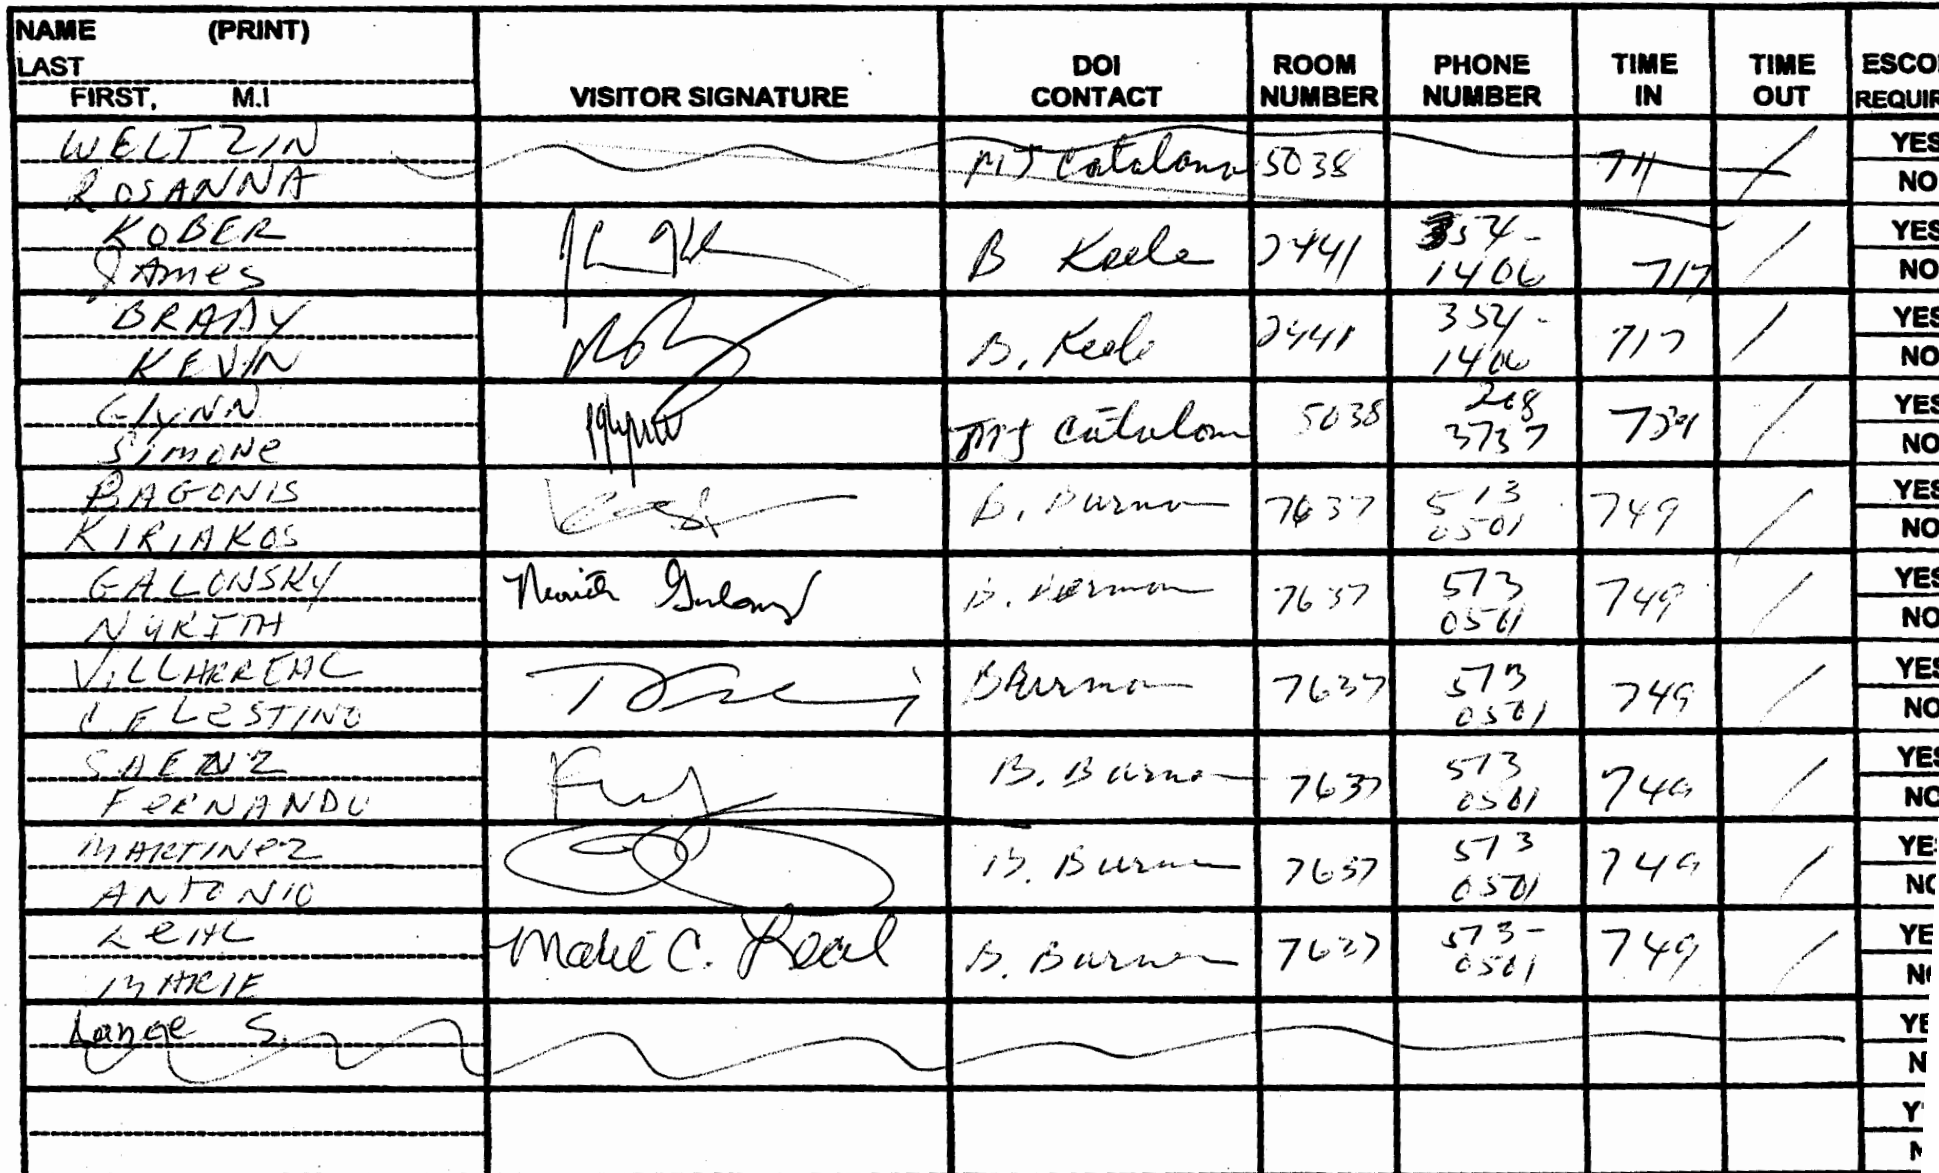 NAME (PRINT)
LAST
FIRST, M.I
VISITOR SIGNATURE
DOI
CONTACT
ROOM
NUMBER
PHONE
NUMBER
TIME
IN
TIME
OUT
ESCO
REQUIR
WELTZIN
ROSANNA
MJ Catalano 5038 711 /
YES
NO
KOBER
James
B Keele 2441 354-
1406 717 /
YES
NO
BRADY
KEVIN
B. Keele 2441 354-
1406 717 /
YES
NO
Glynn
Simone
MJ Catalano 5038 208
3737 /
YES
NO
BAGONIS
KIRIAKOS
B. 7637 513
0501 749 /
YES
NO
GALONSKY
NYRITH
B. 7637 513
0501 749 /
YES
NO
VILLARREAL
CELESTINO
7637 513
0501 749 /
YES
NO
SAENZ
FERNANDO
B. 7637 513
0501 749 /
YES
NO
MARTINEZ
ANTONIO
B. 7637 513
0501 749 /
YE
NO
LEAL
MARIE
Marie C. Leal B. 7637 513-
0501 749 /
YE
N
Lange S.
YE
N
Y
N